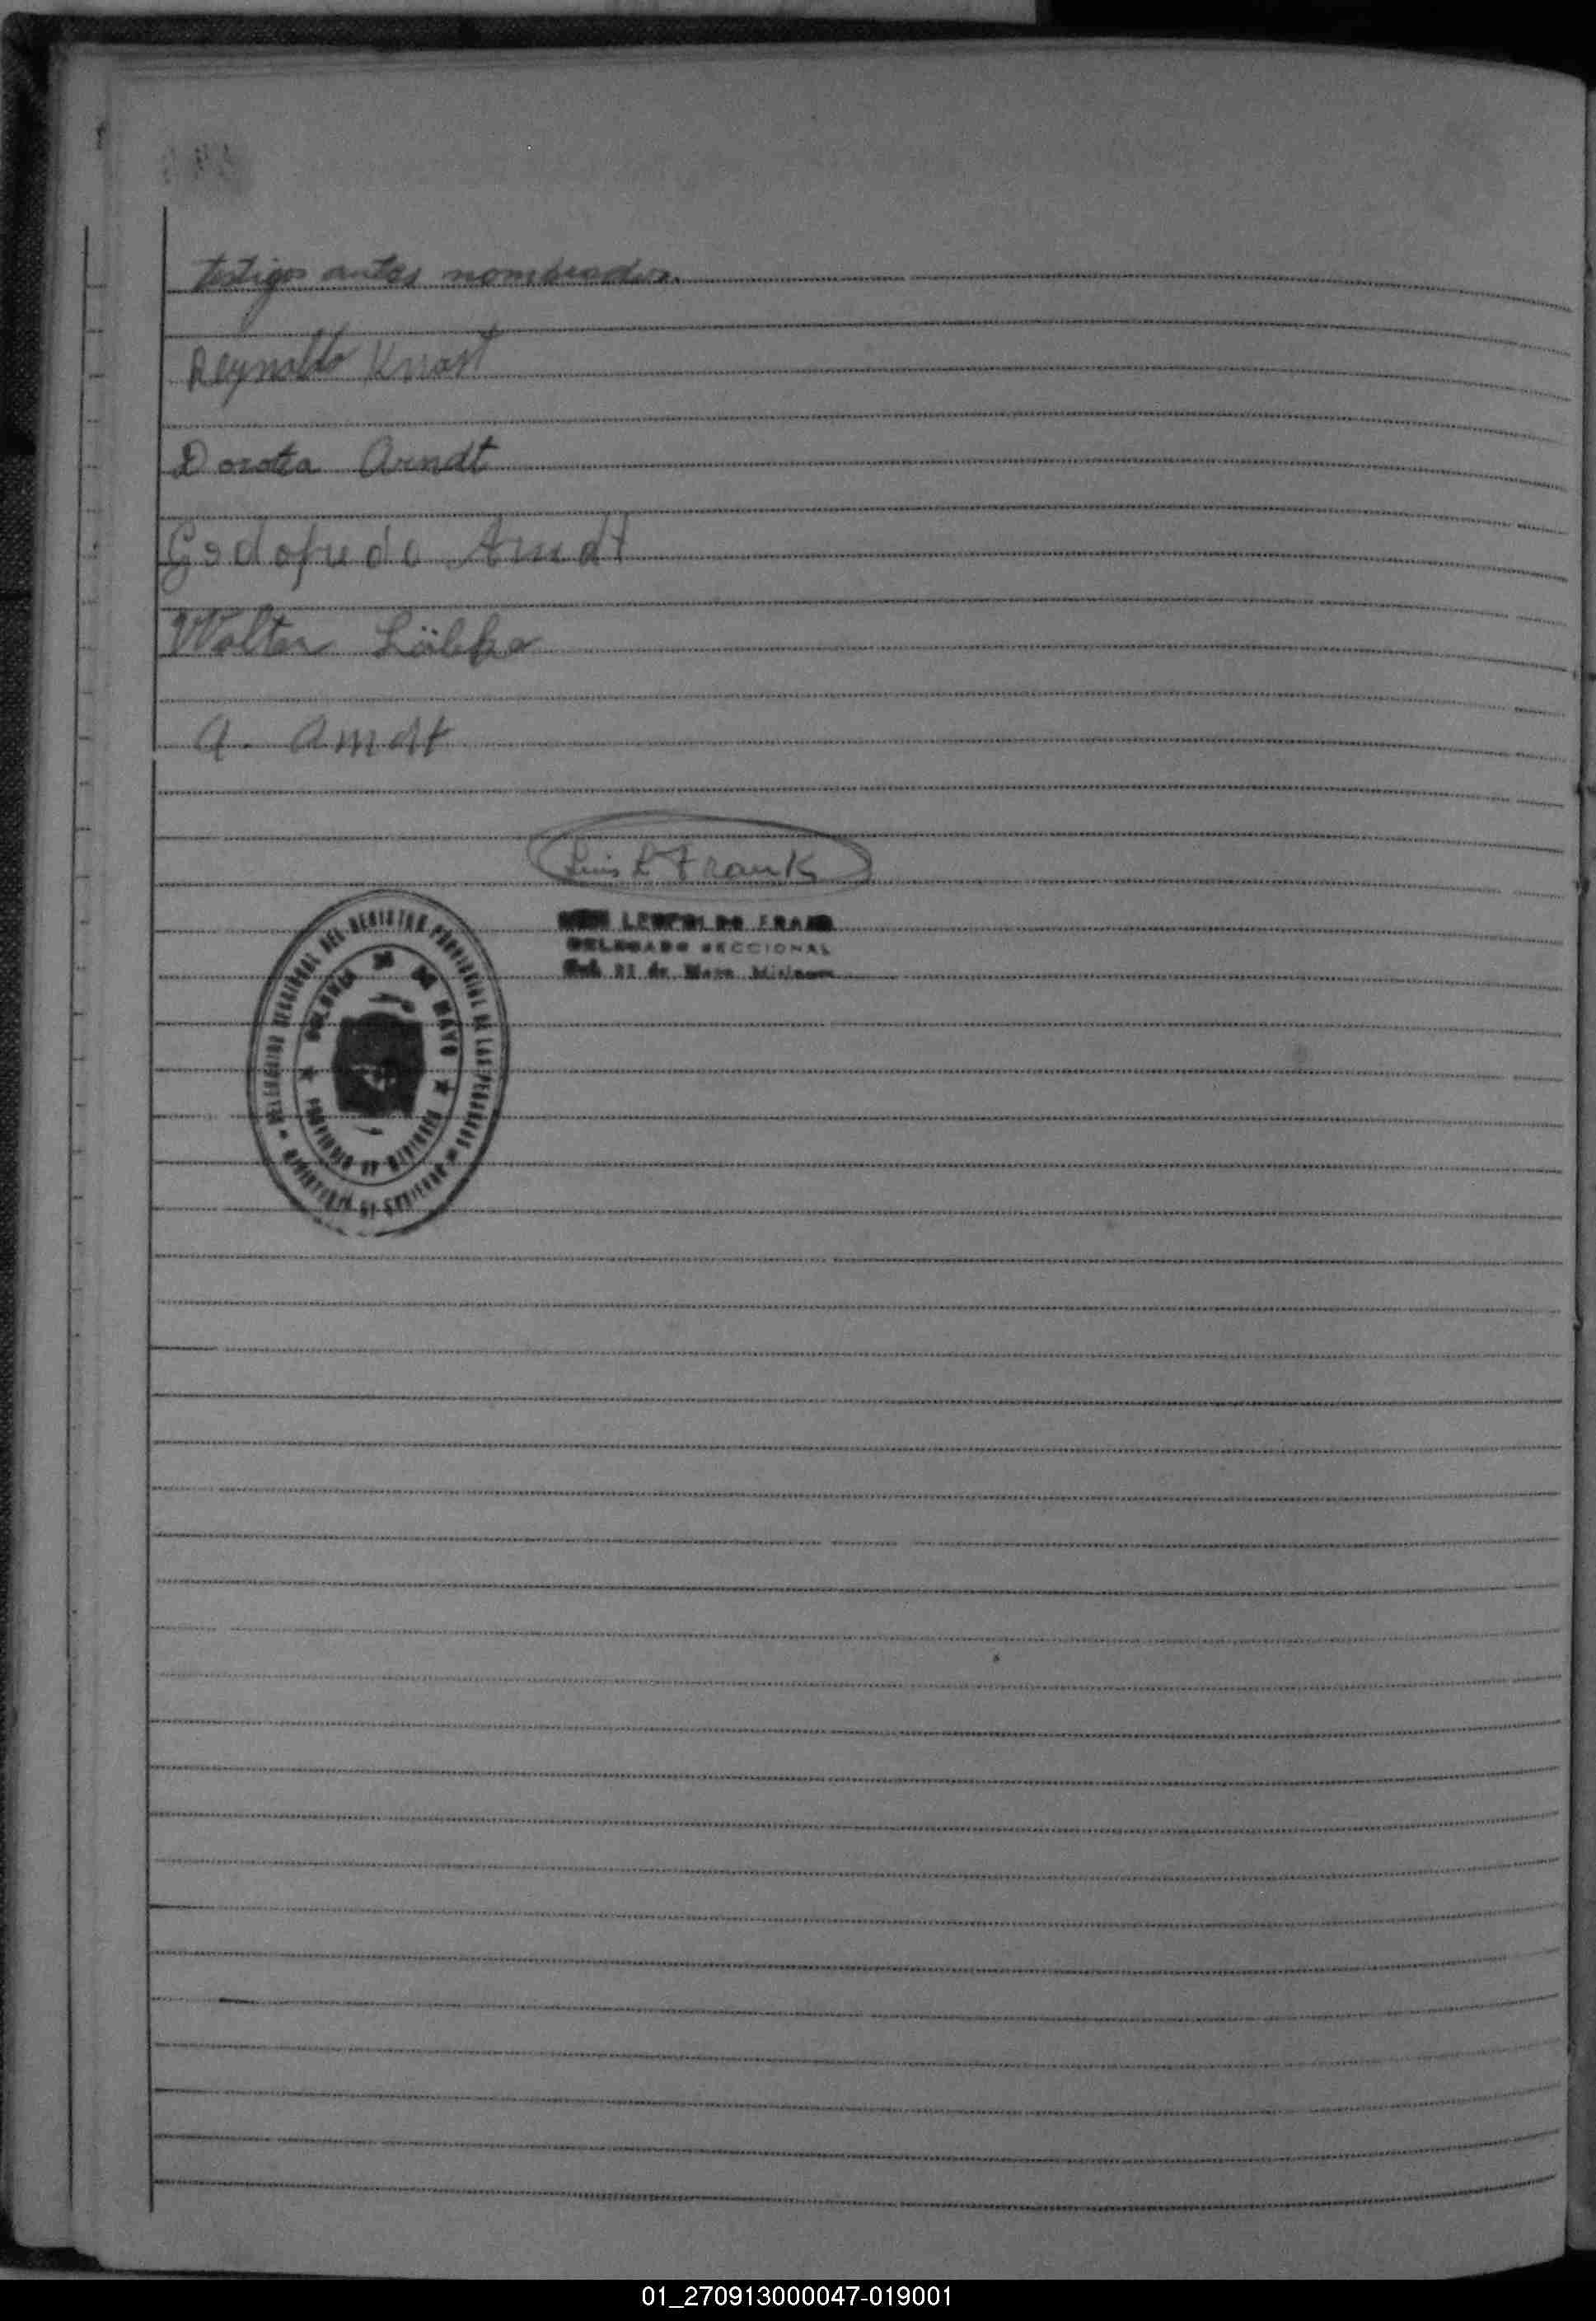 testigos antes nombrados.
Reynoldo Knast
Dorota Arndt
Godofredo Arndt
Walter Lübke
A. Arndt
Luis L Frank
LEOPOLDO FRANK
DELEGADO SECCIONAL
Col. 25 de Mayo Misiones
DELEGACION SECCIONAL DEL REGISTRO PROVINCIAL DE LAS PERSONAS
MINISTERIO DE GOBIERNO
COLONIA 25 DE MAYO
PROVINCIA DE MISIONES
01_270913000047-019001